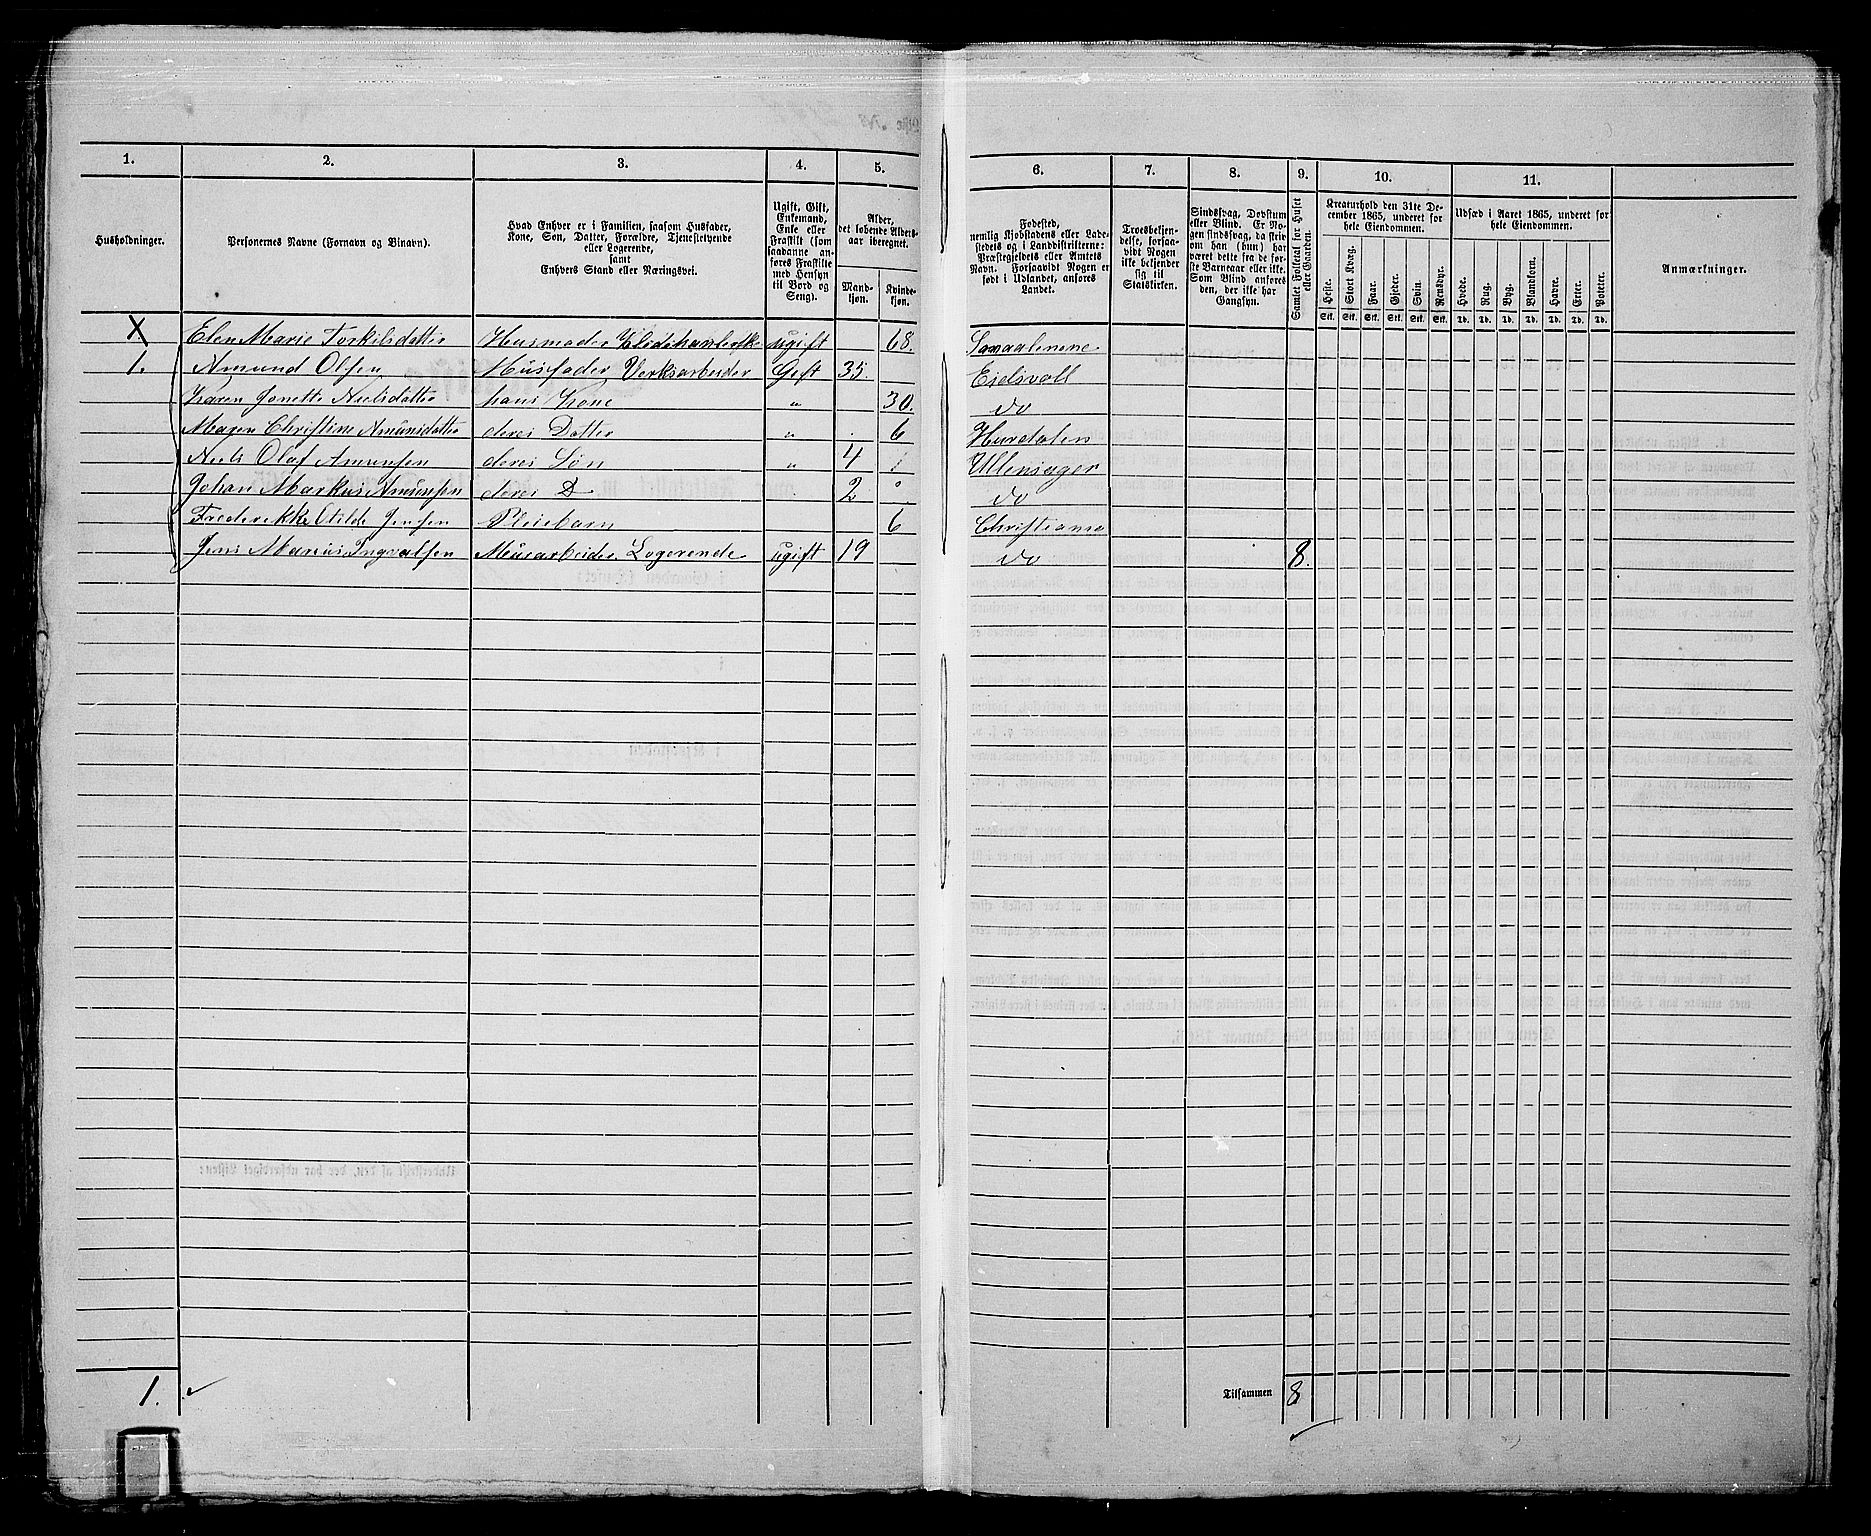 1. 2. 3. 4. 5. 6. 7. 8. 9. 10. 11.
Husholdninger.
Personernes Navne (Fornavn og Binavn).
Hvad Enhver er i Familien, saasom Husfader,
Kone, Søn, Datter, Forældre, Tjenestetyende
eller Logerende,
samt
Enhvers Stand eller Næringsvei.
Ugift, Gift,
Enkemand,
Enke eller
Fraskilt (som
saadanne an-
føres Fraskilte
med Hensyn
til Bord og
Seng).
Alder,
det løbende Alders-
aar iberegnet.
Mand-
kjøn.
Kvinde-
kjøn.
Fødested,
nemlig Kjøbstadens eller Lade-
stedets og i Landdistrikterne:
Præstegjeldets eller Amtets
Navn. Forsaavidt Nogen er
født i Udlandet, anføres
Landet.
Troesbekjen-
delse, forsaa-
vidt Nogen
ikke bekjender
sig til
Statskirken.
Sindssvag, Døvstum
eller Blind. Er No-
gen sindssvag, da skriv
om han (hun) har
været dette fra de før-
ste Barneaar eller ikke.
Som Blind anføres
den, der ikke har
Gangsyn.
Samlet Folketal for Huset
eller Gaarden.
Kreaturhold den 31te De-
cember 1865, underet for
hele Eiendommen.
Heste. Stort Kvæg. Faar. Gjeder. Svin. Rensdyr.
Stk. Stk. Stk. Stk. Stk. Stk.
Udsæd i Aaret 1865, underet for
hele Eiendommen.
Hvede. Rug. Byg. Blandkorn. Havre. Erter. Poteter.
Td. Td. Td. Td. Td. Td. Td.
Anmærkninger.
X Elen Marie Torkilsdatter Husmoder ugift 68.
1. Amund Olsen Husfader Verksarbeider Gift 35. Eidsvoll
Karen Jonette Nielsdatter hans Kone " 30. do
Maren Christine Amunsdatter deres Datter " 6 Hurdalen
Niels Olaf Amunsen deres Søn " 4 Ullensager
Johan Markus Amunsen deres D 2 do
Frederikke Otilde Jensen Pleiebarn 6 Christiania
Jens Marius Ingvalsen Logerende ugift 19 do 8.
1. Tilsammen 8